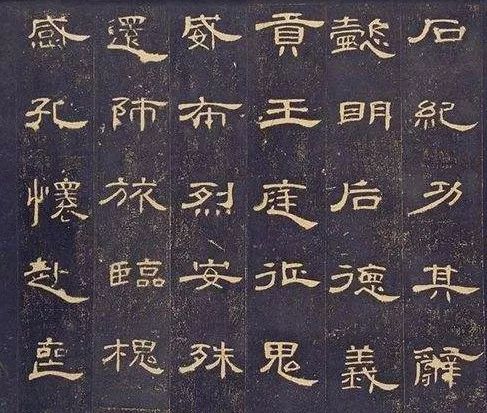 石紀功其辭
懿明后德義
貢王庭征鬼
威布烈安殊
還師旅臨槐
感孔懷赴喪